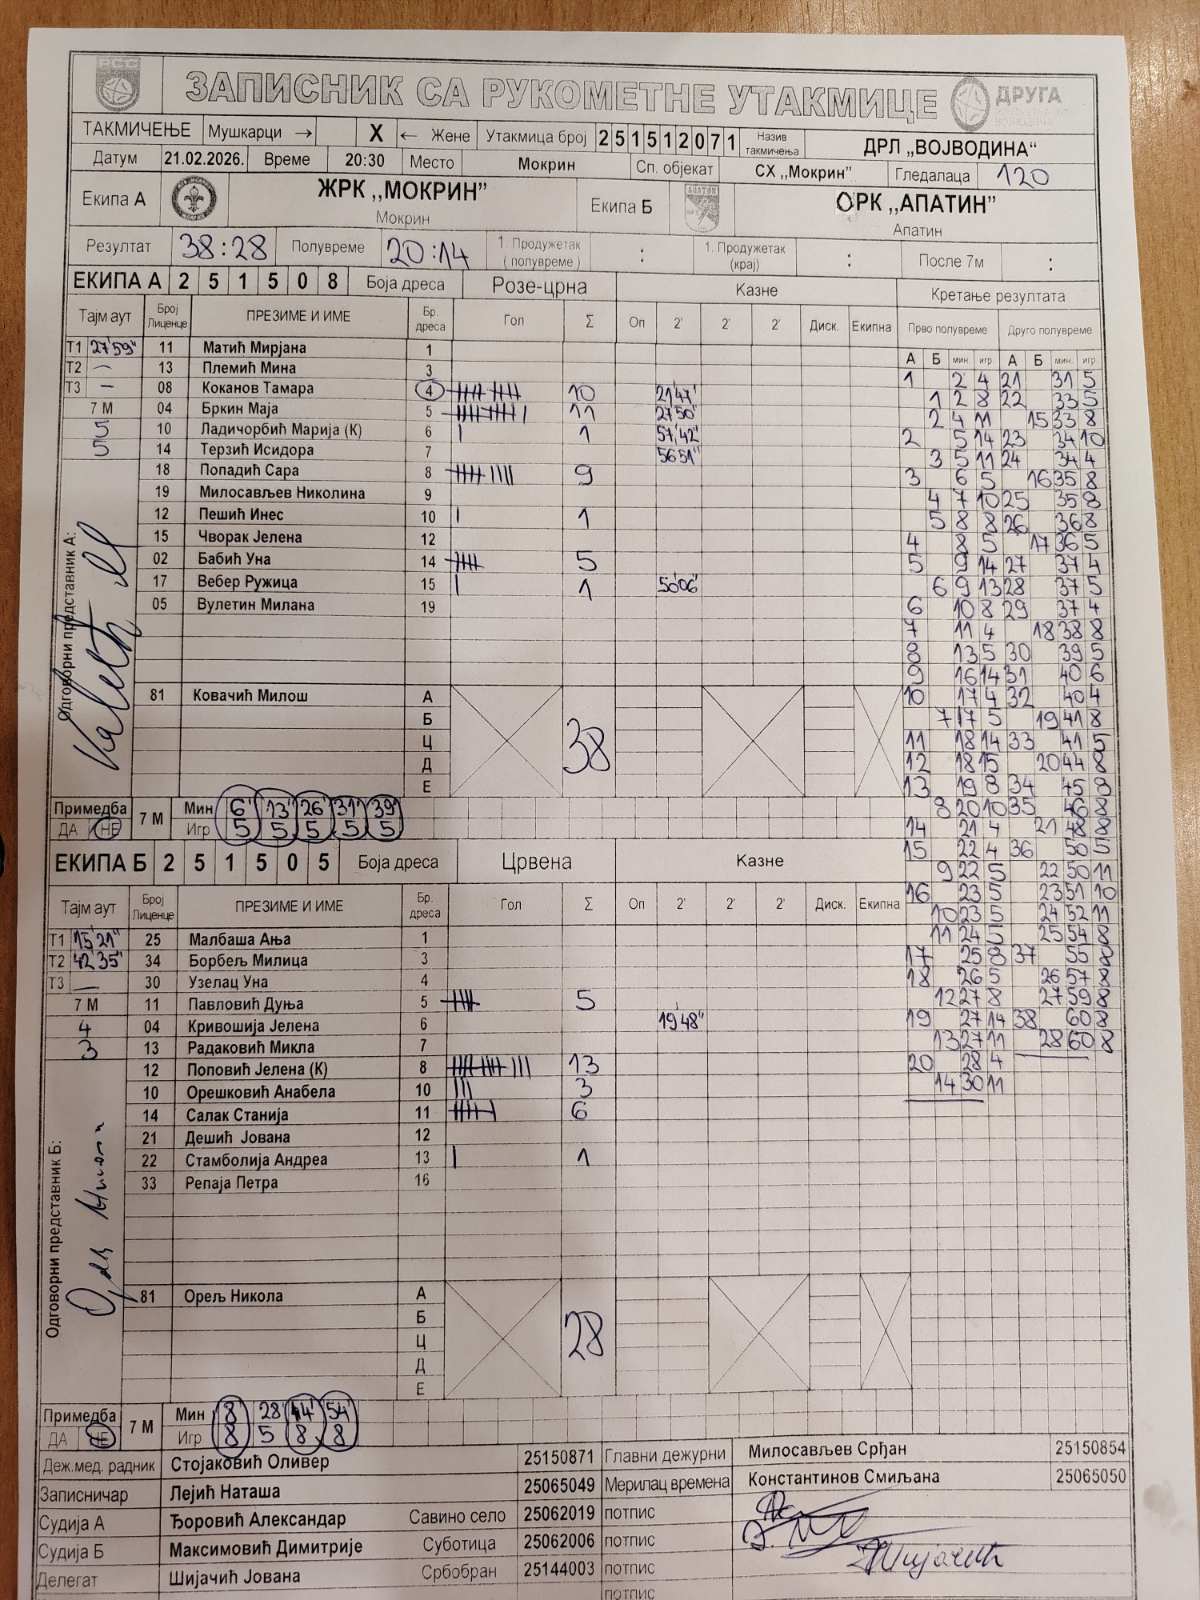 РСС
ЗАПИСНИК СА РУКОМЕТНЕ УТАКМИЦЕ
ДРУГА
ТАКМИЧЕЊЕ Мушкарци → X ← Жене Утакмица број 2 5 1 5 1 2 0 7 1 Назив такмичења ДРЛ „ВОЈВОДИНА“
Датум 21.02.2026. Време 20:30 Место Мокрин Сп. објекат СХ „Мокрин” Гледалаца 120
Екипа А ЖРК „МОКРИН” Екипа Б АПАТИН ОРК „АПАТИН”
Мокрин Апатин
Резултат 38:28 Полувреме 20:14 1. Продужетак (полувреме) : 1. Продужетак (крај) : После 7м :
ЕКИПА А 2 5 1 5 0 8 Боја дреса Розе-црна Казне Кретање резултата
Тајм аут Број Лиценце ПРЕЗИМЕ И ИМЕ Бр. дреса Гол Σ Оп 2' 2' 2' Диск. Екипна Прво полувреме Друго полувреме
А Б мин. игр А Б мин. игр
Т1 27'59" 11 Матић Мирјана 1
Т2 – 13 Племић Мина 3
Т3 – 08 Коканов Тамара 4 10 21'47"
7 М 04 Бркин Маја 5 11 27'50"
5 10 Ладичорбић Марија (К) 6 1 57'42"
5 14 Терзић Исидора 7 56 51"
18 Попадић Сара 8 9
19 Милосављев Николина 9
12 Пешић Инес 10 1
15 Чворак Јелена 12
02 Бабић Уна 14 5
17 Вебер Ружица 15 1 50'06"
05 Вулетин Милана 19
Одговорни представник А:
81 Ковачић Милош А
Б
Ц
Д
Е
38
Примедба ДА НЕ 7 М Мин 6' 13' 26' 31' 39'
Игр 5 5 5 5 5
1 2 4 21 31 5
1 2 8 22 33 5
2 4 11 15 33 8
2 5 14 23 34 10
3 5 11 24 34 4
3 6 5 16 35 8
4 7 10 25 35 8
5 8 8 26 36 8
4 8 5 17 36 5
5 9 14 27 37 4
6 9 13 28 37 5
6 10 8 29 37 4
7 11 4 18 38 8
8 13 5 30 39 5
9 16 14 31 40 6
10 17 4 32 40 4
7 17 5 19 41 8
11 18 14 33 41 5
12 18 15 20 44 8
13 19 8 34 45 8
8 20 10 35 46 8
14 21 4 21 48 8
15 22 4 36 50 5
9 22 5 22 50 11
16 23 5 23 51 10
10 23 5 24 52 11
11 24 5 25 54 8
17 25 8 37 55 8
18 26 5 26 57 8
12 27 8 27 59 8
19 27 14 38 60 8
13 27 11 28 60 8
20 28 4
14 30 11
ЕКИПА Б 2 5 1 5 0 5 Боја дреса Црвена Казне
Тајм аут Број Лиценце ПРЕЗИМЕ И ИМЕ Бр. дреса Гол Σ Оп 2' 2' 2' Диск. Екипна
Т1 15'21" 25 Малбаша Ања 1
Т2 42'35" 34 Борбељ Милица 3
Т3 – 30 Узелац Уна 4
7 М 11 Павловић Дуња 5 5
4 04 Кривошија Јелена 6 19'48"
3 13 Радаковић Микла 7
12 Поповић Јелена (К) 8 13
10 Орешковић Анабела 10 3
14 Салак Станија 11 6
21 Дешић Јована 12
22 Стамболија Андреа 13 1
33 Репаја Петра 16
Одговорни представник Б:
81 Орељ Никола А
Б
Ц
Д
Е
28
Примедба ДА НЕ 7 М Мин 8' 28' 44' 54'
Игр 8 5 8 8
Деж.мед. радник Стојаковић Оливер 25150871 Главни дежурни Милосављев Срђан 25150854
Записничар Лејић Наташа 25065049 Мерилац времена Константинов Смиљана 25065050
Судија А Ђоровић Александар Савино село 25062019 потпис
Судија Б Максимовић Димитрије Суботица 25062006 потпис
Делегат Шијачић Јована Србобран 25144003 потпис
потпис